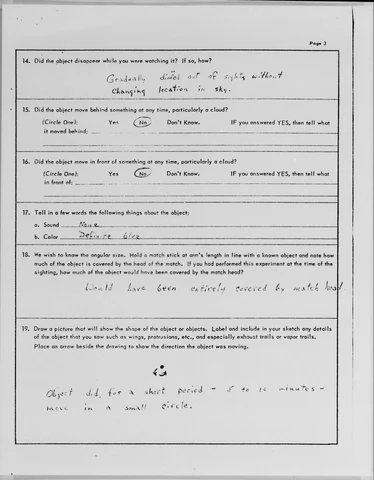 Page 3
14. Did the object disappear while you were watching it? If so, how?
Gradually dimed out of sight, without
changing location in sky.
15. Did the object move behind something at any time, particularly a cloud?
(Circle One): Yes No Don't Know. IF you answered YES, then tell what
it moved behind:
16. Did the object move in front of something at any time, particularly a cloud?
(Circle One): Yes No Don't Know. IF you answered YES, then tell what
in front of:
17. Tell in a few words the following things about the object:
a. Sound None
b. Color Definite blue
18. We wish to know the angular size. Hold a match stick at arm's length in line with a known object and note how
much of the object is covered by the head of the match. If you had performed this experiment at the time of the
sighting, how much of the object would have been covered by the match head?
Would have been entirely covered by match head
19. Draw a picture that will show the shape of the object or objects. Label and include in your sketch any details
of the object that you saw such as wings, protrusions, etc., and especially exhaust trails or vapor trails.
Place an arrow beside the drawing to show the direction the object was moving.
Object did, for a short period - 5 to 10 minutes -
move in a small circle.